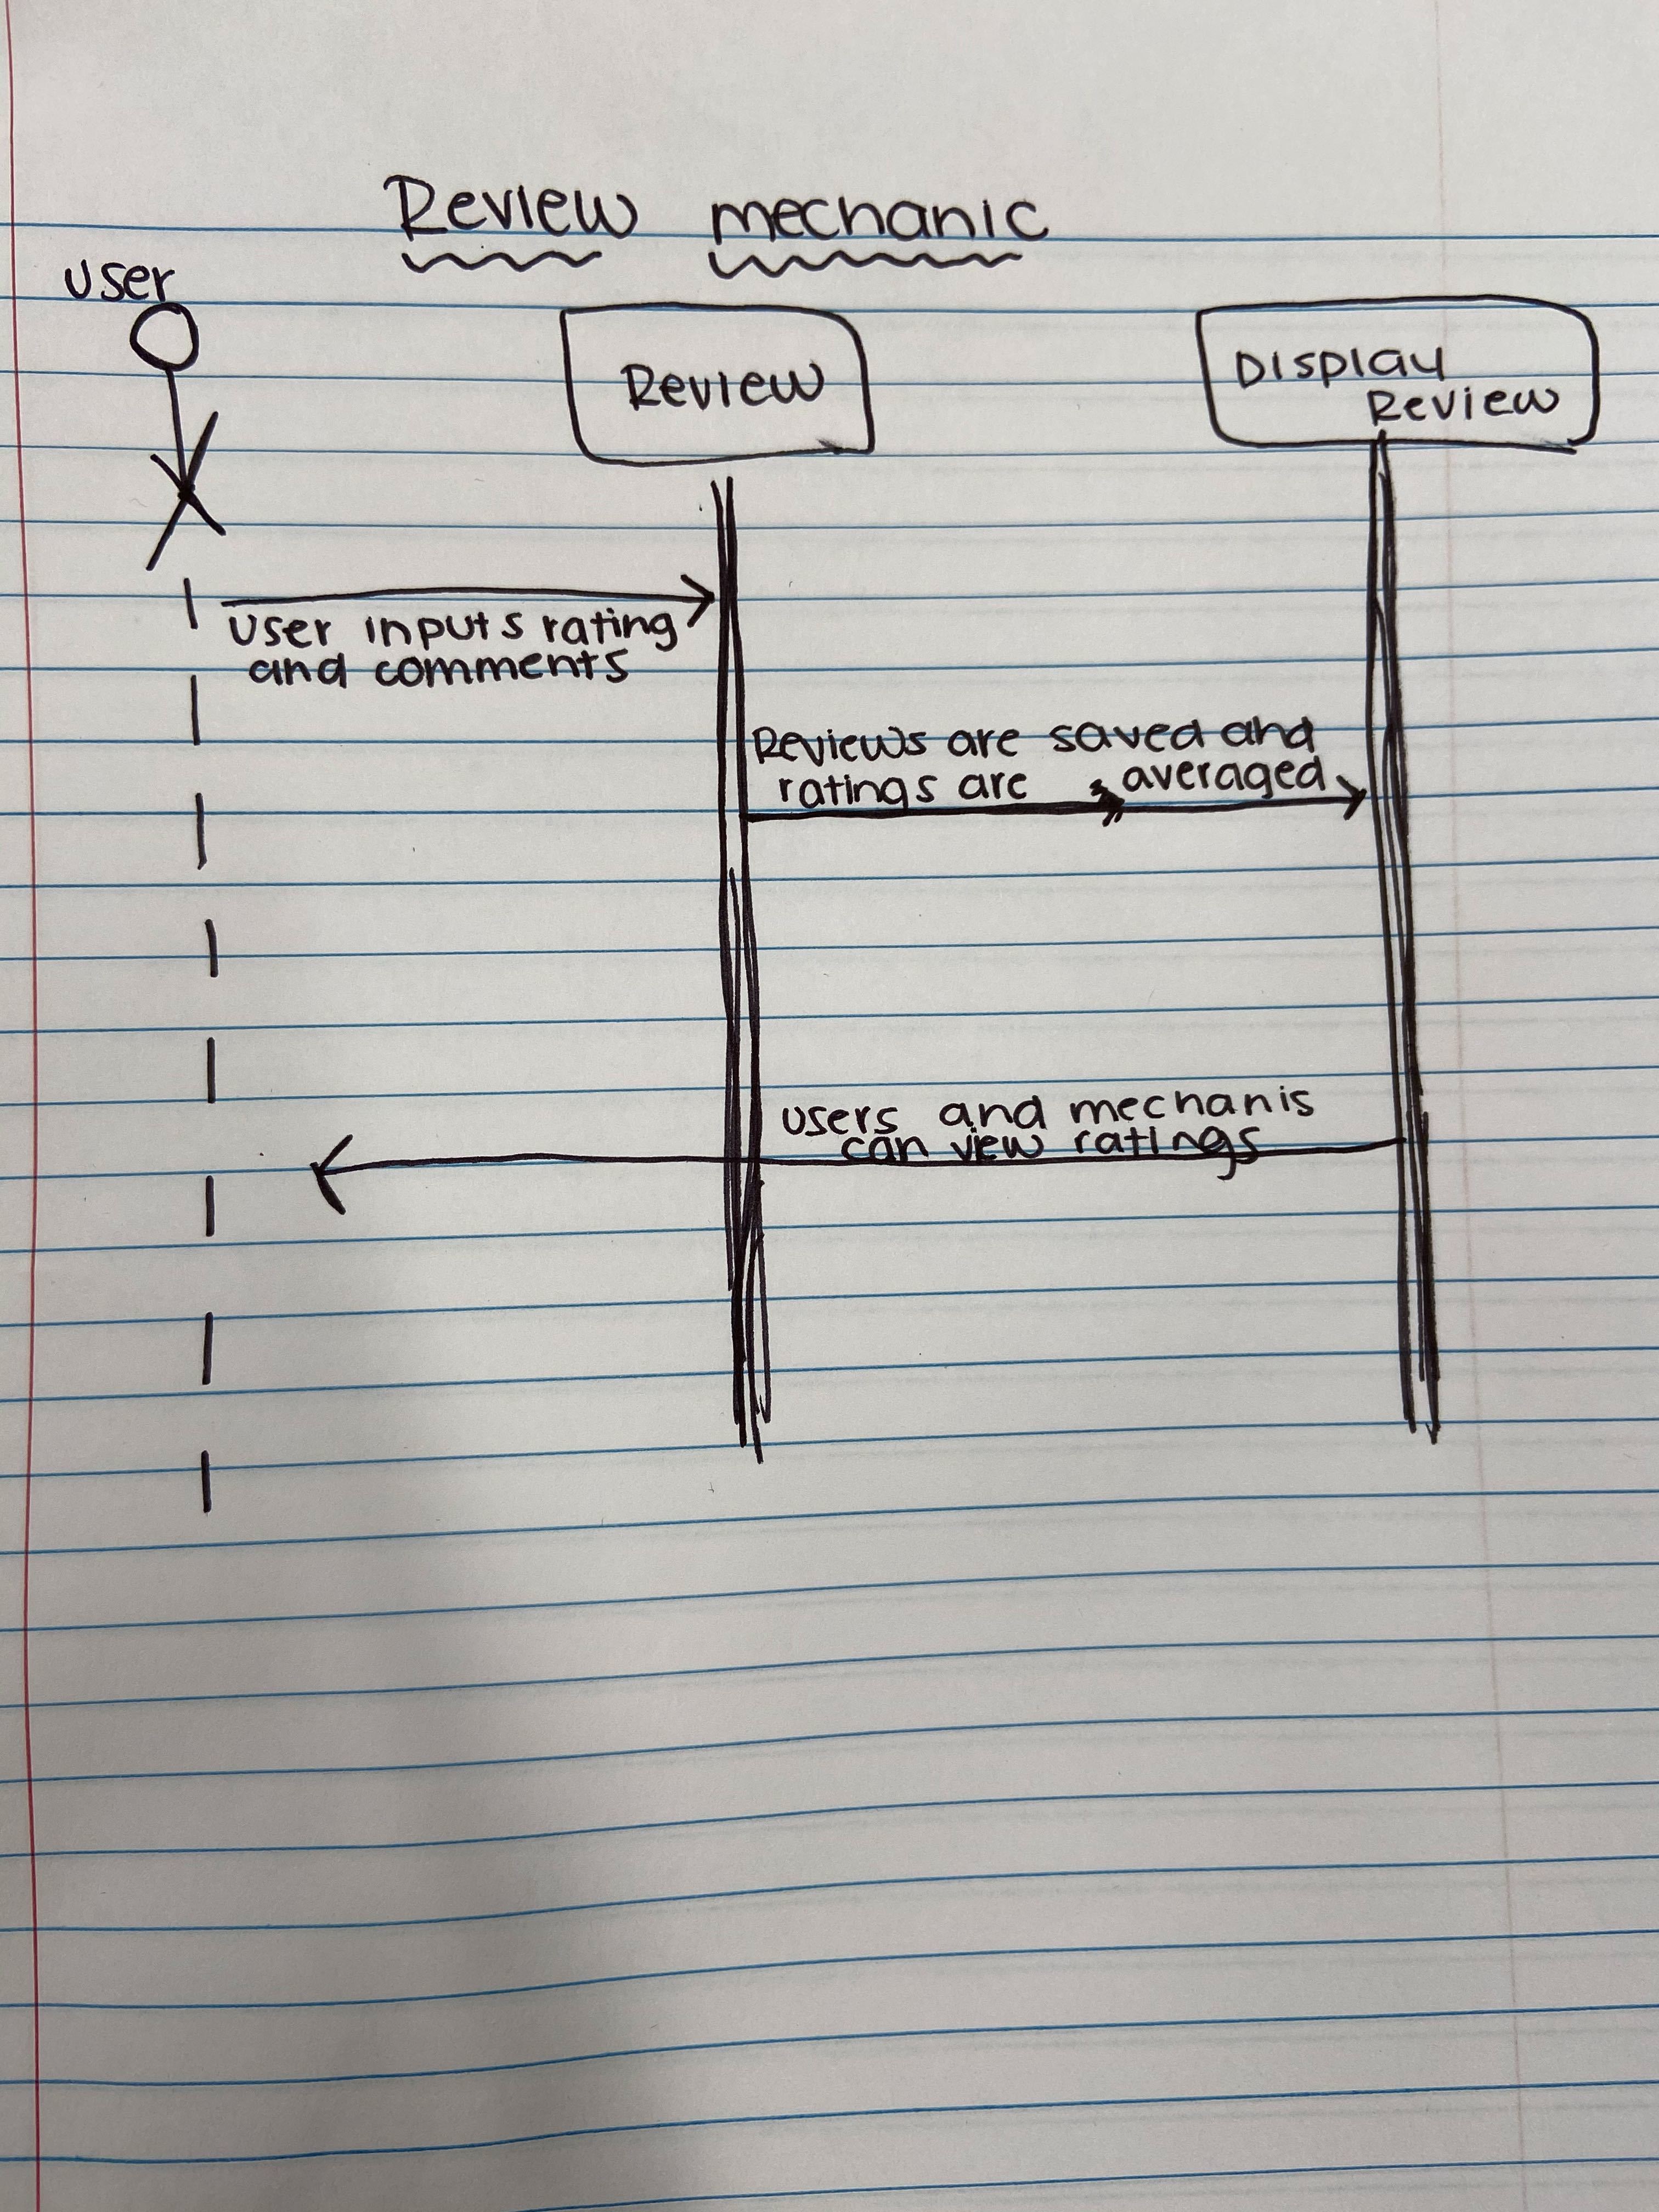 Review mechanic
user
Review
Display
Review
User inputs rating
and comments
Reviews are saved and
ratings are averaged
users and mechanis
can view ratings